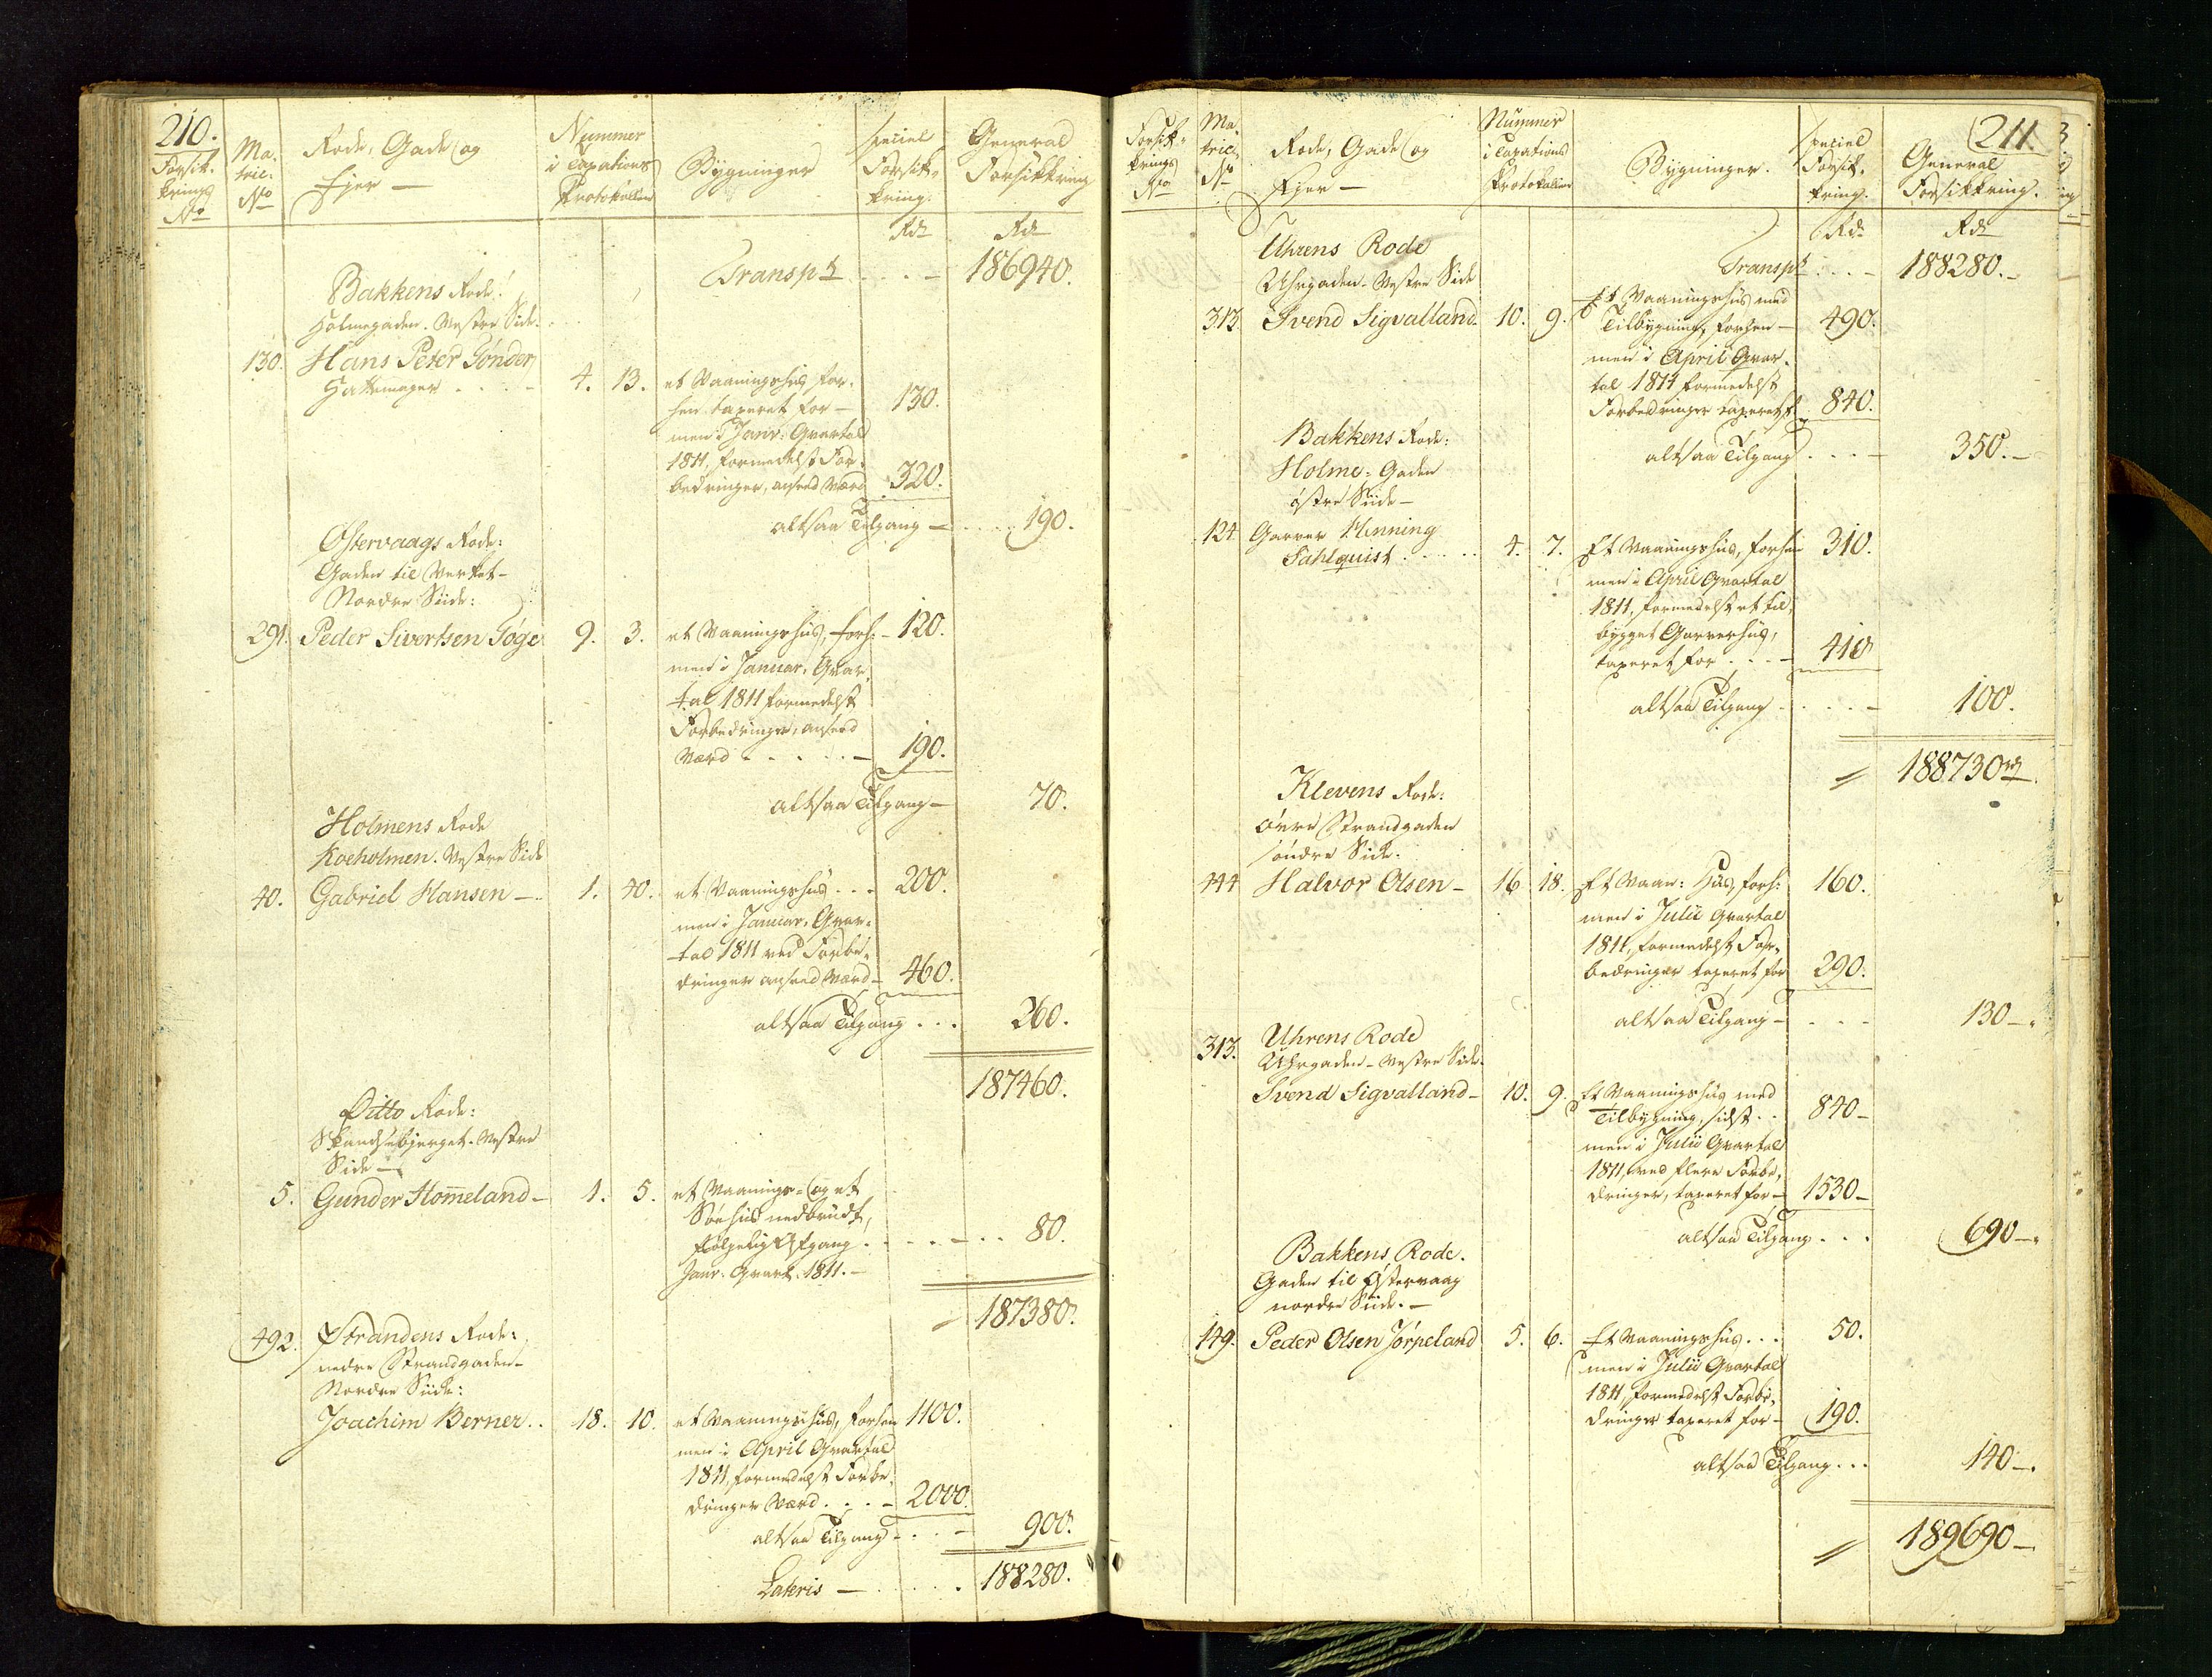 210.
Forsik-
krings
No
Ma-
tric:
No
Rode, Gade og
Ejer —
Nummer
i Taxations
Protokollen
Bygninger
speciel
Forsik-
kring.
General
Forsikkring
Rdr
Rdr
Transpt . . . — 186940.
Bakkens Rode:
Holmegaden. Vestre Side.
130. Hans Peter Sønder
Hattemager . . . . — 4. 13. et Vaaningshus for-
hen taxeret for — 130.
men i Janr. Qvartal
1811, formedelst For-
bedringer, anseed Værd 320.
altsaa Tilgang — . . . . 190.
Østervaags Rode:
Gaden til Verket —
Nordre Side:
291. Peder Sivertsen Søge 9. 3. et Vaaningshus, forh: — 120.
men i Januar. Qvar-
tal 1811 formedelst
Forbedringer, anseed
Værd — . . . . — 190.
altsaa Tilgang — 70.
Holmens Rode
Koeholmen. Vestre Side
40. Gabriel Hansen — . 1. 40. et Vaaningshus . . . 200.
men i Januar. Qvar-
tal 1811 ved Forbe-
dringer anseed Værd — 460.
altsaa Tilgang . . . 260.
187460.
Ditto Rode:
Skandsebjerget. Vestre
Side —
5. Gunder Hom̅eland — 1. 5. et Vaanings- og et
Søehus nedbrudt,
følgelig Afgang . . . . — . . 80.
Janr. Qvart. 1811. —
187380.
492. Strandens Rode:
nedre Strandgaden —
Nordre Side:
Joachim Berner . . 18. 10. et Vaaningshus, forhen 1100.
men i April Qvartal
1811, formedelst Forbe-
dringer Værd . . . — 2000.
altsaa Tilgang — . . — 900.
Lateris — . . . . 188280.
211.
Forsik-
krings
No
Ma-
tric:
No
Rode, Gade og
Ejer —
Nummer
i Taxations
Protokollen
Bygninger.
speciel
Forsik-
kring.
General
Forsikkring.
Rdr
Rdr
Uhrens Rode
Uhrgaden — Vestre Side
Transpt . . . — 188280. —
313. Svend Sigvalland. 10. 9. Et Vaaningshus med
Tilbygning, forhen — 490.
men i April Qvar-
tal 1811 formedelst
Forbedringer taxeret f. 840.
altsaa Tilgang . . . — 350. —
Bakkens Rode:
Holme-Gaden
østre Side —
124 Garver Henning
Sahlquist . . . . . 4. 7. Et Vaaningshus, forhen 310.
men i April Qvartal
1811, formedelst et til-
bygget Garverhus,
taxeret for . . . — 410
altsaa Tilgang — . . . — 100.
188730 rdr
Klevens Rode:
øvre Strandgaden
søndre Side.
444 Halvor Olsen — 16 18. Et Vaan: Hus, forh: 160.
men i Julii Qvartal
1811, formedelst For-
bedringer taxeret for 290.
altsaa Tilgang — . . . 130 —.
313. Uhrens Rode
Uhrgaden — Vestre Side.
Svend Sigvalland — 10. 9. Et Vaaningshus med
Tilbygning, sidst . . 840 —
men i Julii Qvartal
1811, ved flere Forbe-
dringer, taxeret for — 1530 —
altsaa Tilgang . . . 690 —.
Bakkens Rode.
Gaden til Østervaag
nordre Side. —
149. Peder Olsen Jørpeland 5. 6. Et Vaaningshus . . . 50.
men i Julii Qvartal
1811, formedelst Forbe-
dringer taxeret for — 190.
altsaa Tilgang . . . 140 —.
189690 —